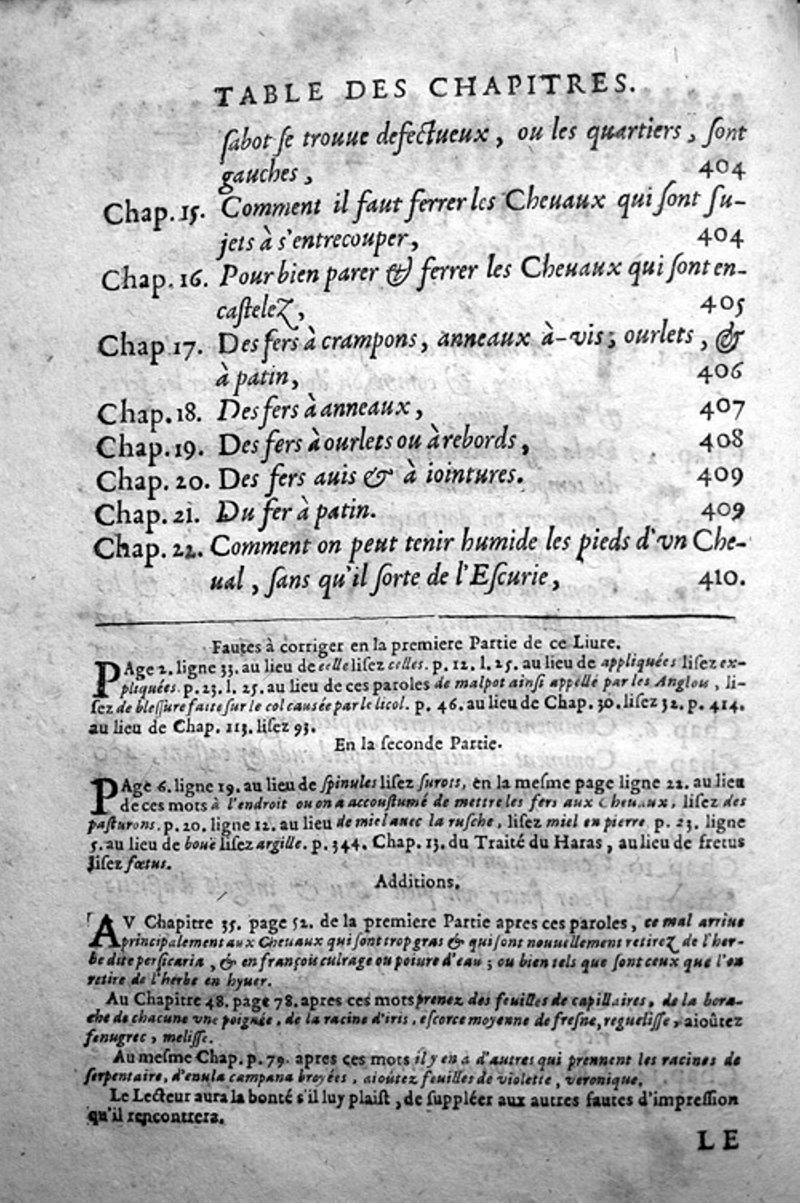 TABLE DES CHAPITRES.
ſabot ſe trouue defectueux, ou les quartiers, ſont
gauches, 404
Chap. 15. Comment il faut ferrer les Cheuaux qui ſont ſu-
jets à s'entrecouper, 404
Chap. 16. Pour bien parer & ferrer les Cheuaux qui ſont en-
caſtelez, 405
Chap 17. Des fers à crampons, anneaux à-vis; ourlets, &
à patin, 406
Chap. 18. Des fers à anneaux, 407
Chap. 19. Des fers à ourlets ou à rebords, 408
Chap. 20. Des fers auis & à iointures. 409
Chap. 21. Du fer à patin. 409
Chap. 22. Comment on peut tenir humide les pieds d'vn Che-
ual, ſans qu'il ſorte de l'Eſcurie, 410.
Fautes à corriger en la premiere Partie de ce Liure.
PAge 2. ligne 33. au lieu de celle liſez celles. p. 12. l. 25. au lieu de appliquées liſez ex-
pliquées. p. 23. l. 25. au lieu de ces paroles de malpot ainſi appellé par les Anglois, li-
ſez de bleſſure faite ſur le col cauſée par le licol. p. 46. au lieu de Chap. 30. liſez 32. p. 414.
au lieu de Chap. 113. liſez 93.
En la ſeconde Partie.
PAge 6. ligne 19. au lieu de ſpinules liſez ſurots, en la meſme page ligne 22. au lieu
de ces mots à l'endroit ou on a accouſtumé de mettre les fers aux Cheuaux, liſez des
paſturons. p. 20. ligne 12. au lieu de miel auec la ruſche, liſez miel en pierre. p. 23. ligne
5. au lieu de bouë liſez argille. p. 344. Chap. 13. du Traité du Haras, au lieu de fretus
liſez fœtus.
Additions.
AV Chapitre 35. page 52. de la premiere Partie apres ces paroles, ce mal arriue
principalement aux Cheuaux qui ſont trop gras & qui ſont nouuellement retirez de l'her-
be dite perſicaria, & en françois culrage ou poiure d'eau; ou bien tels que ſont ceux que l'on
retire de l'herbe en hyuer.
Au Chapitre 48. page 78. apres ces mots prenez des feuilles de capillaires, de la bora-
che de chacune vne poignée, de la racine d'iris, eſcorce moyenne de freſne, regueliſſe, aioûtez
fenugrec, meliſſe.
Au meſme Chap. p. 79. apres ces mots il y en a d'autres qui prennent les racines de
ſerpentaire, d'enula campana broyées, aioûtez feuilles de violette, veronique,
Le Lecteur aura la bonté s'il luy plaiſt, de ſuppléer aux autres fautes d'impreſſion
qu'il rencontrera.
LE